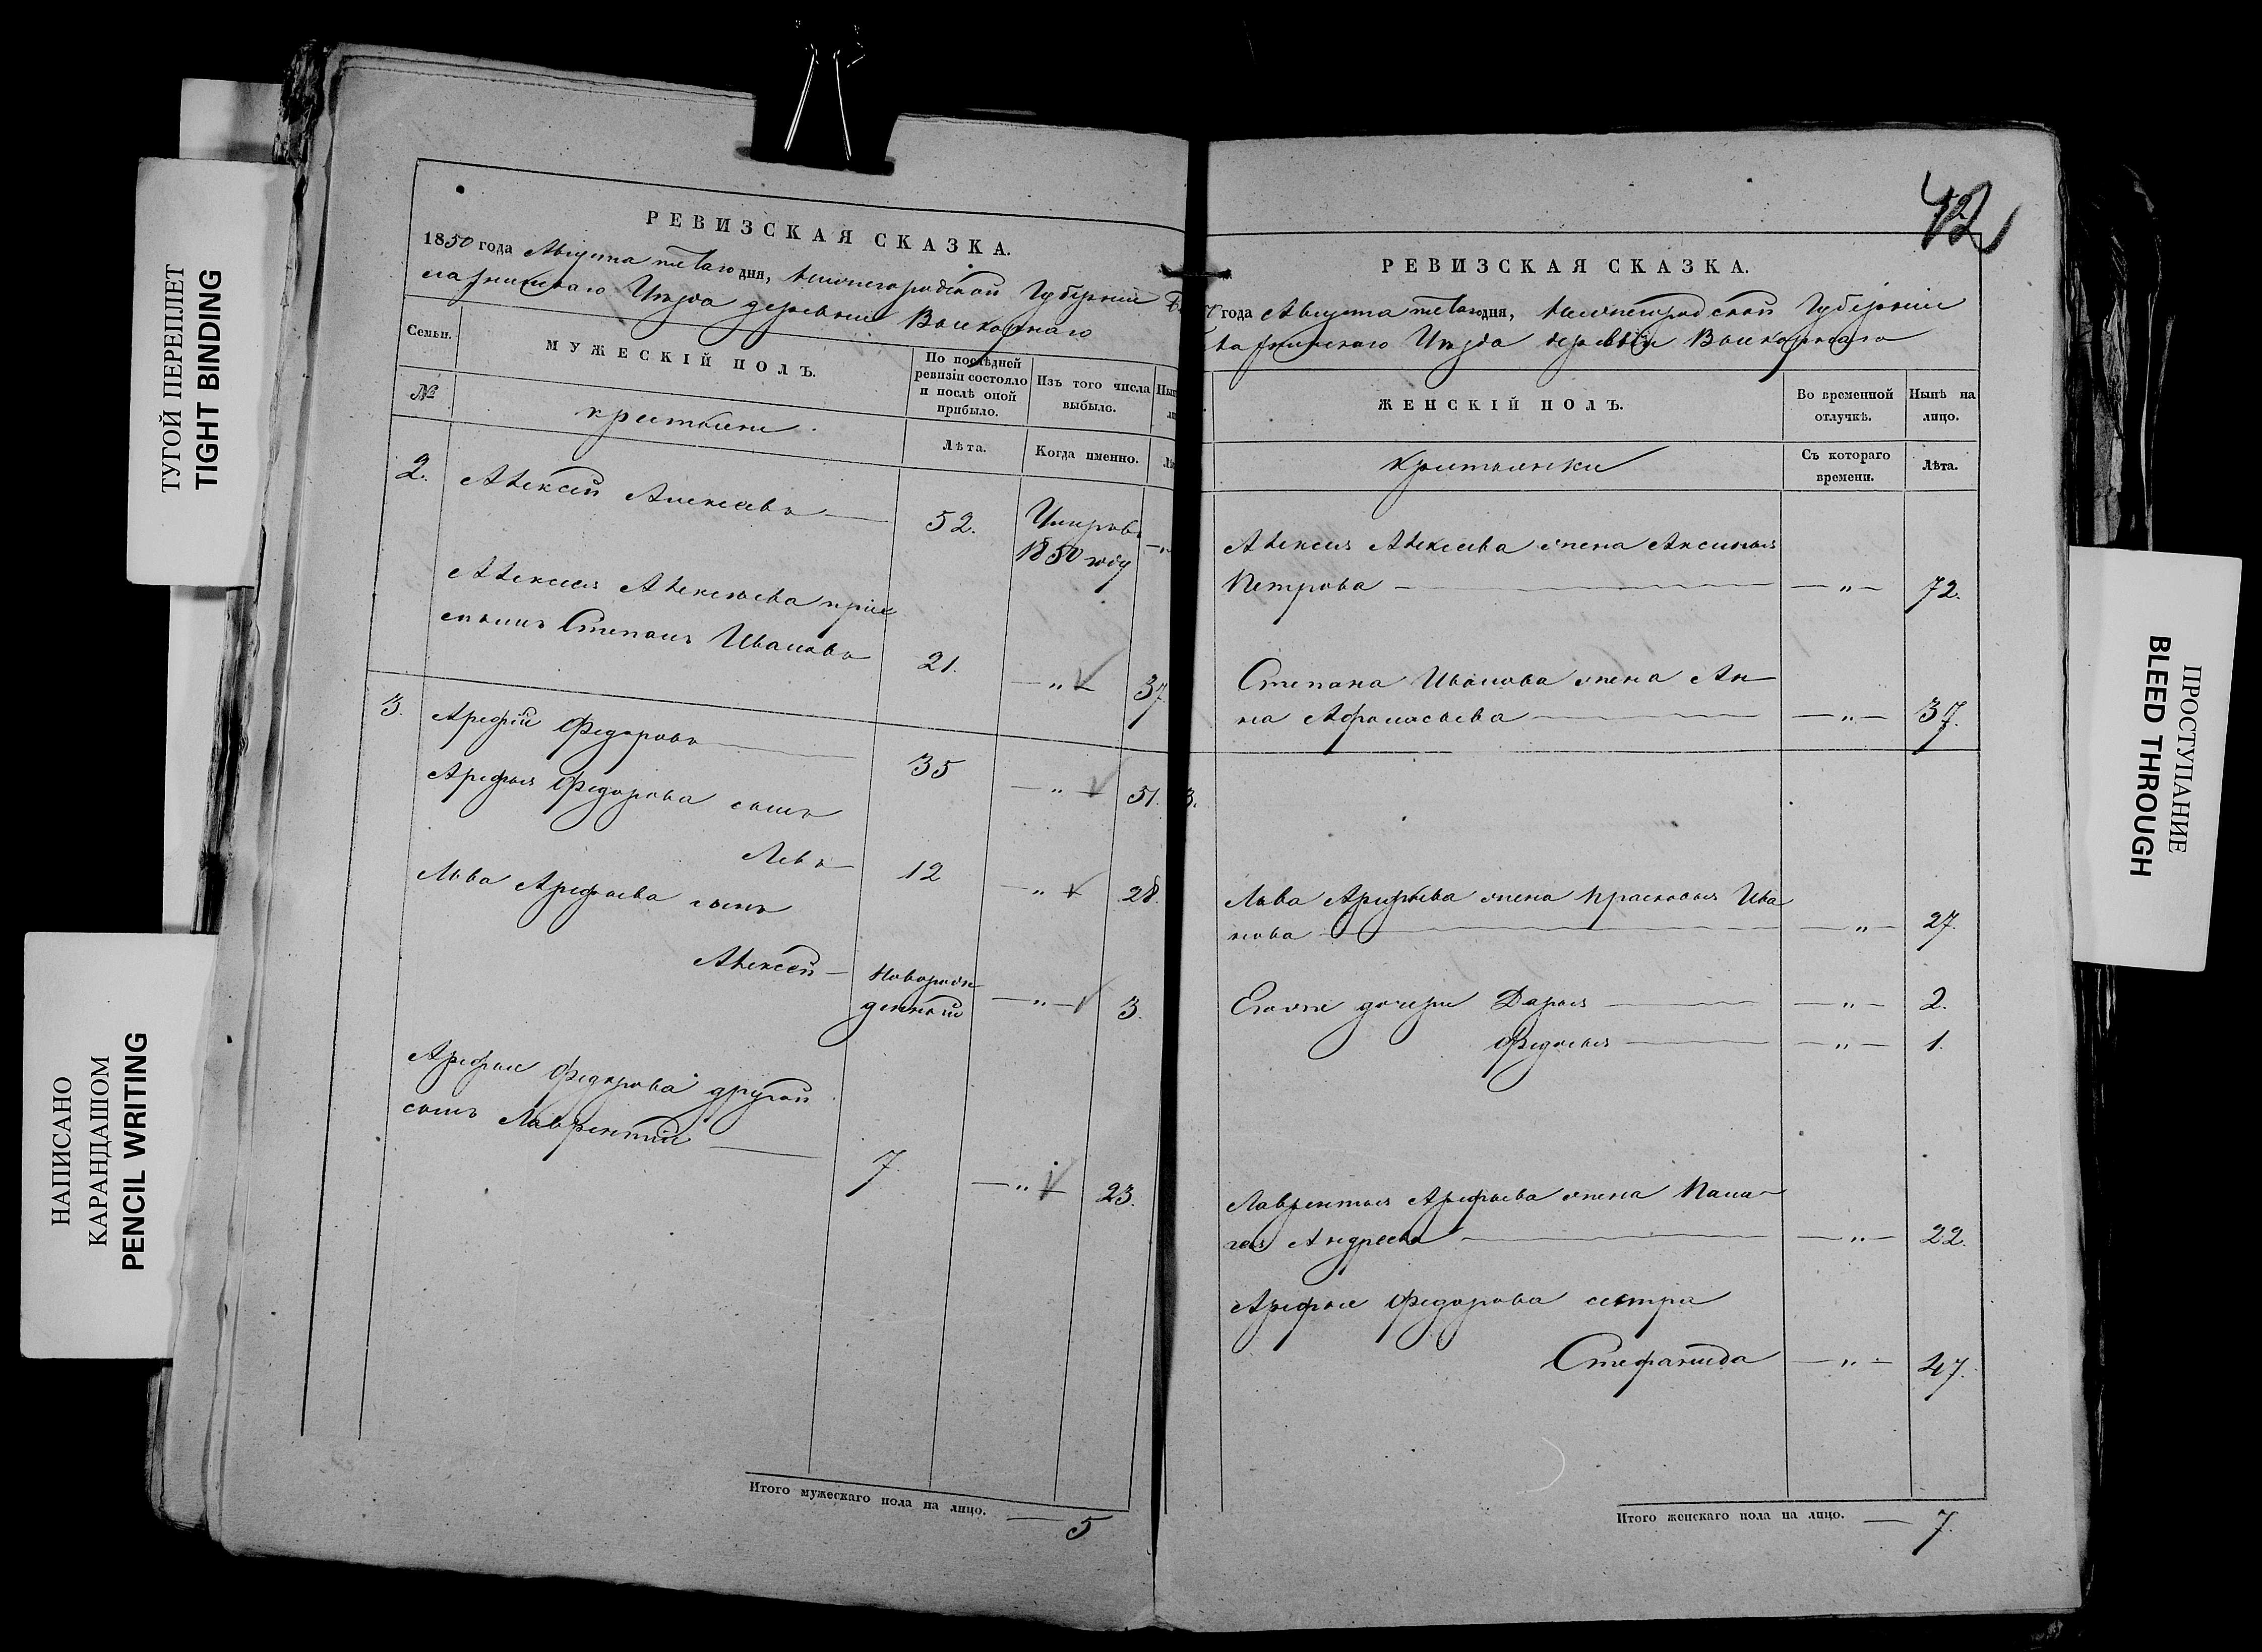 ТУГОЙ ПЕРЕПЛЕТ
TIGHT BINDING
НАПИСАНО
КАРАНДАШОМ
PENCIL WRITING
РЕВИЗСКАЯ СКАЗКА.
1850 года Августа пятаго дня, Нижегородской Губернии
Уѣзда деревни
Семьи.
МУЖЕСКІЙ ПОЛЪ.
По послѣдней ревизіи состояло и послѣ оной прибыло.
Изъ того числа выбыло.
№
крестьяне.
Лѣта.
Когда именно.
2. Алексѣй Алексѣевъ — 52. Умеръ въ 1850 году — „
Алексѣя Алексѣева прие
мышъ Степанъ Ивановъ 21. — „ — 37.
3. Арефій Федоровъ — 35 — „ — 51.
Арефья Федорова сынъ
Левъ — 12 — „ — 28.
Льва Арефьева сынъ
Алексѣй — Новорож-
денный — „ — 3.
Арефья Федорова другой
сынъ Лаврентій — 7. — „ — 23.
Итого мужескаго пола на лицо. — 5
42
РЕВИЗСКАЯ СКАЗКА.
года Августа пятаго дня, Нижегородской Губерніи
Уѣзда деревни
ЖЕНСКІЙ ПОЛЪ.
Во временной отлучкѣ.
Нынѣ на лицо.
крестьянки
Съ котораго времени.
Лѣта.
Алексѣя Алексѣева жена Аксинья
Петрова — — „ — 72.
Степана Иванова жена Ан-
на Афанасьева — — „ — 37.
3.
Льва Арефьева жена Прасковья Ива
нова — — „ — 27.
Еговые дочери Дарья — — „ — 2.
Федосья — — „ — 1.
Лаврентья Арефьева жена Пала-
гея Андреева — — „ — 22.
Арефья Федорова сестра
Стефанида — „ — 47.
Итого женскаго пола на лицо. — 7.
ПРОСТУПАНИЕ
BLEED THROUGH